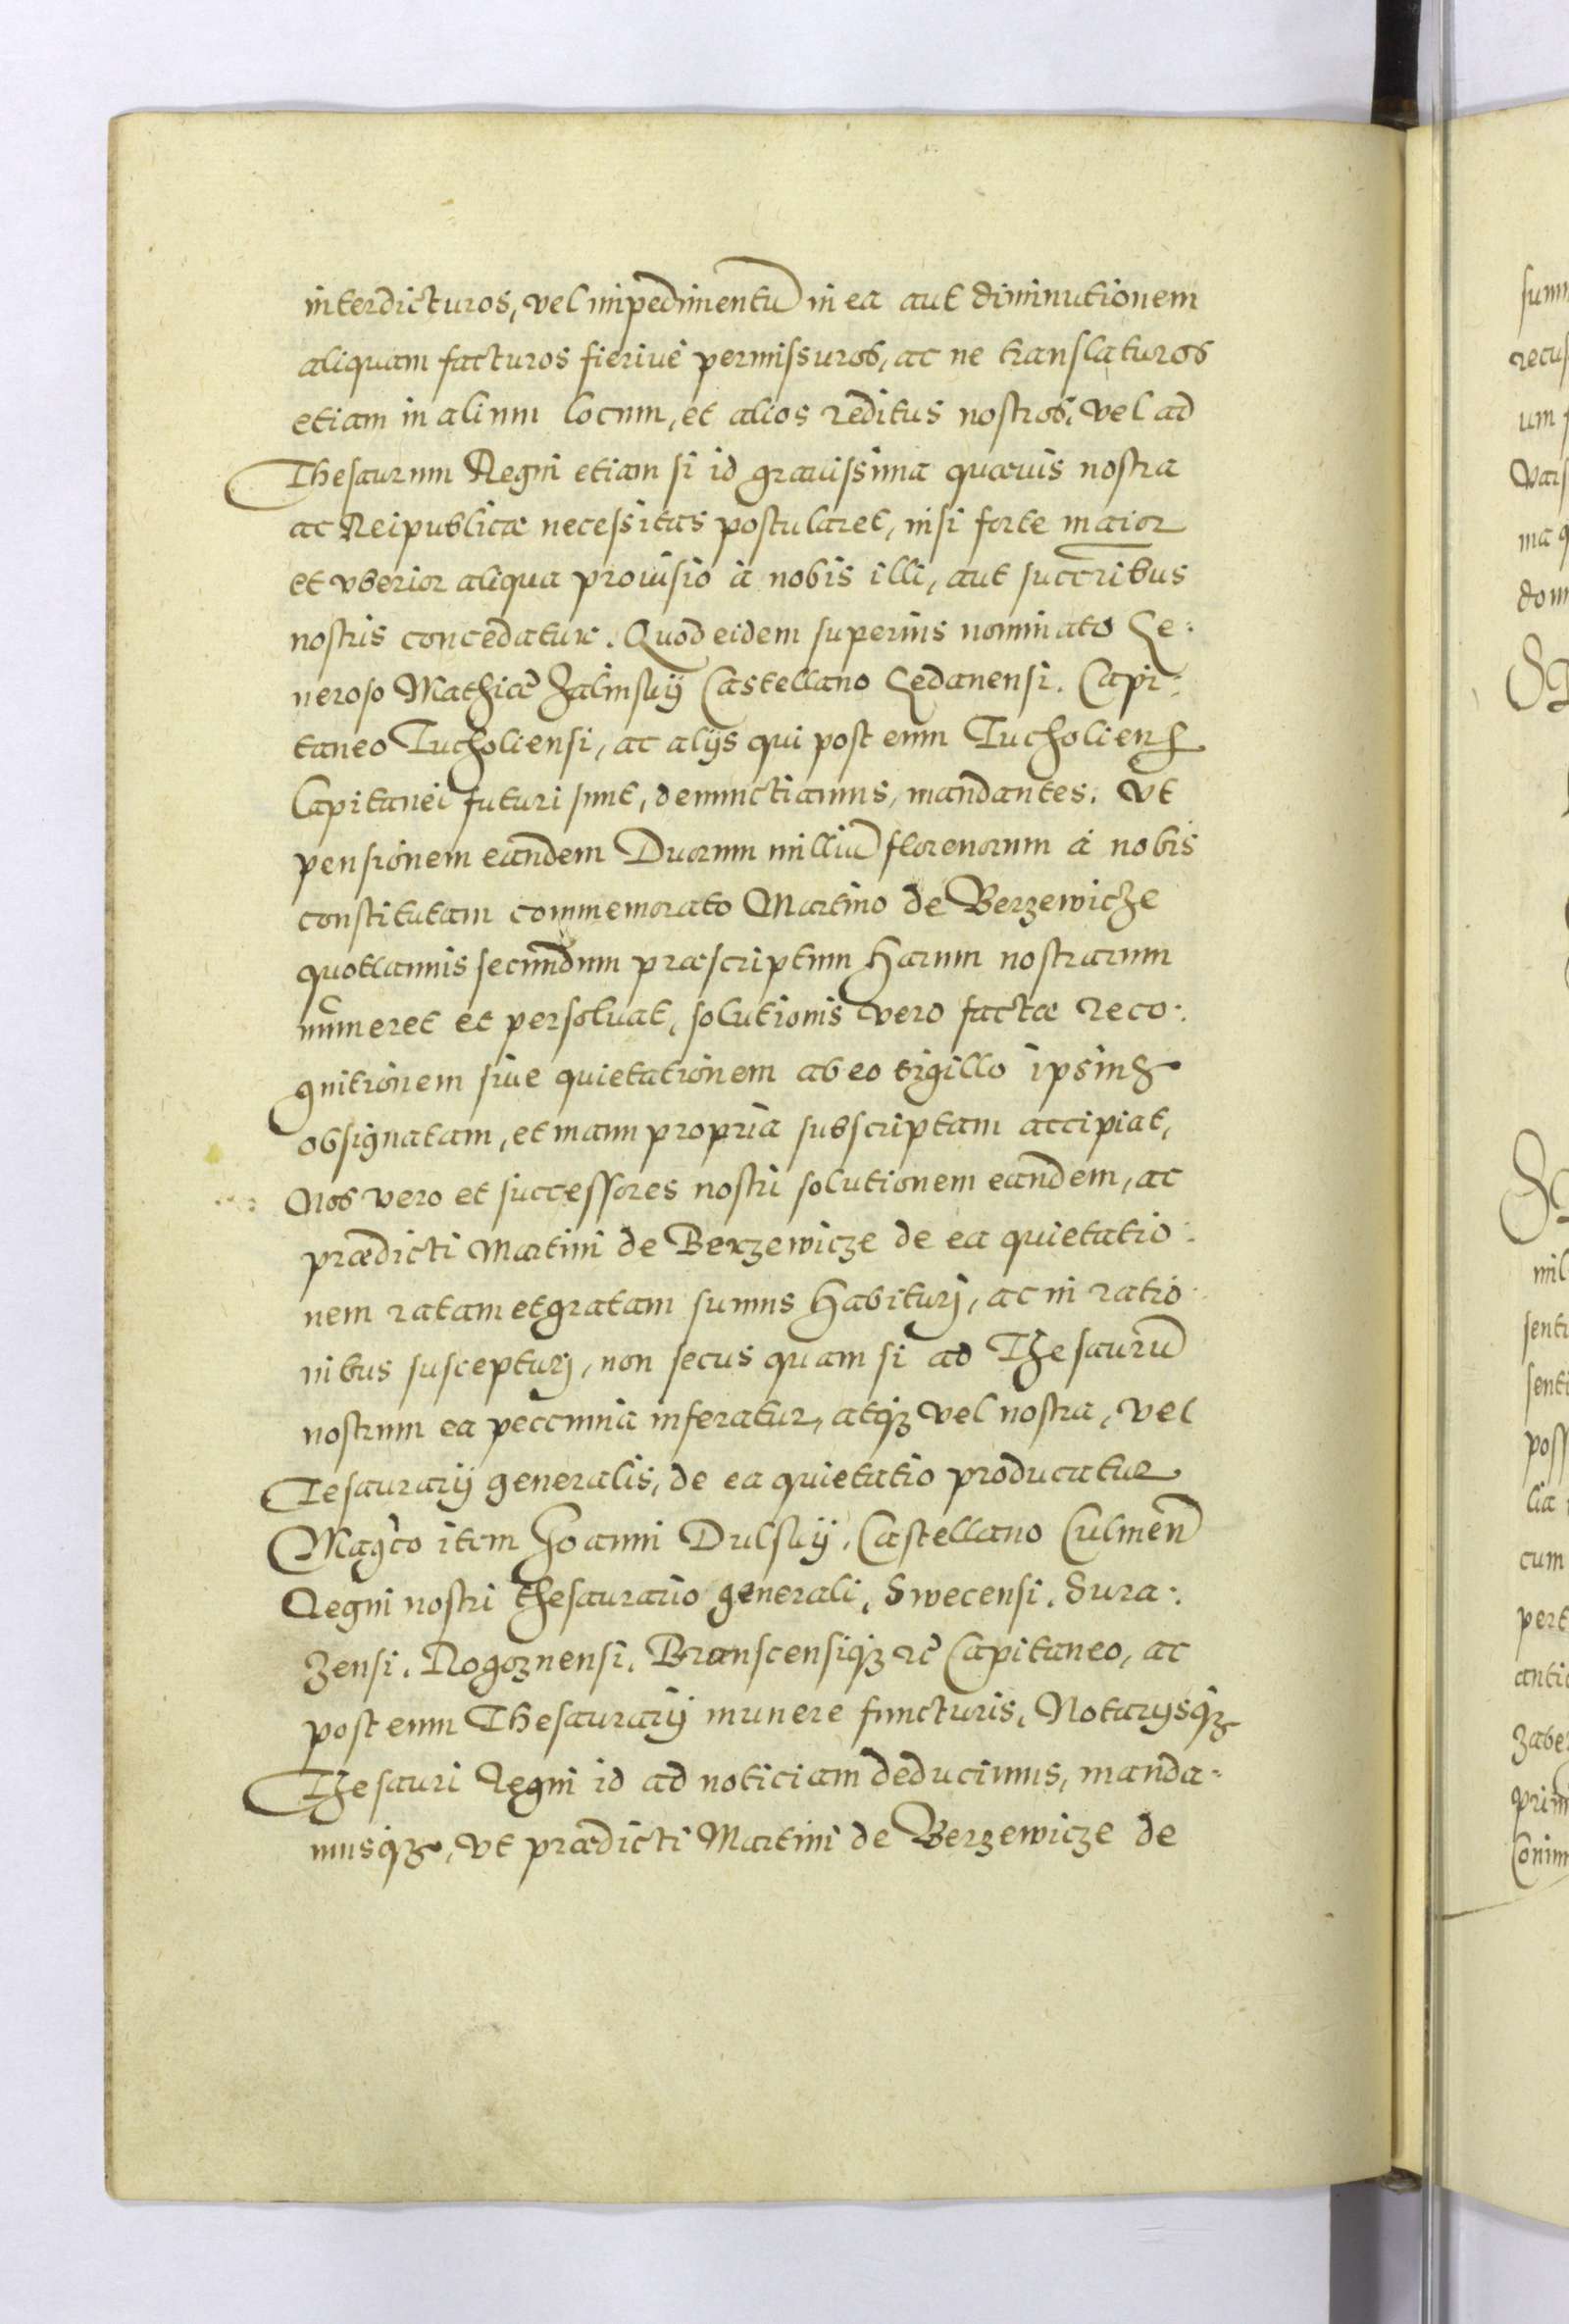 interdicturos, vel impedimentū in ea aut diminutionem
aliquam facturos fieriue permissuros, ac ne translaturos
etiam in alium locum, et alios reditus nostros, vel ad
Thesaurum Regni etiam si id grauissima quæuis nostra
ac Reipublicæ necessitas postularet, nisi forte maior
et vberior aliqua prouisio à nobis illi, aut succribus
nostris concedatur. Quod eidem superius nominato Ge:
neroso Mathiæ Zalinskij Castellano Gedanensi. Capi:
taneo Tucholiensi, ac alijs qui post eum Tucholien
Capitanei futuri sunt, denunctiamus, mandantes. Vt
pensionem eandem Duorum milliū florenorum à nobis
constitutam commemorato Martino de Berzewicze
quotannis secundum præscriptum harum nostrarum
numeret et persoluat, solutionis vero factæ reco:
gnitionem siue quietationem ab eo sigillo ipsius
obsignatam, et manu propria subscriptam accipiat,
Nos vero et successores nostri solutionem eandem, ac
prædicti Martini de Berzewicze de ea quietatio:
nem ratam et gratam sumus habiturj, ac in ratio:
nibus suscepturj, non secus quam si ad Thesaurū
nostrum ea peccunia inferatur, atqz vel nostra, vel
Tesaurarij generalis, de ea quietatio producatur
Magco item Joanni Dulskij, Castellano Culmen
Regni nostri thesaurario generali, Swecensi. Sura:
zensi. Rogoznensi. Branscensiqz rc Capitaneo, ac
post eum Thesaurarij munere functuris, Notarijsqz
Thesauri Regni id ad noticiam deducimus, manda:
musqz, vt prædicti Martini de Berzewicze de